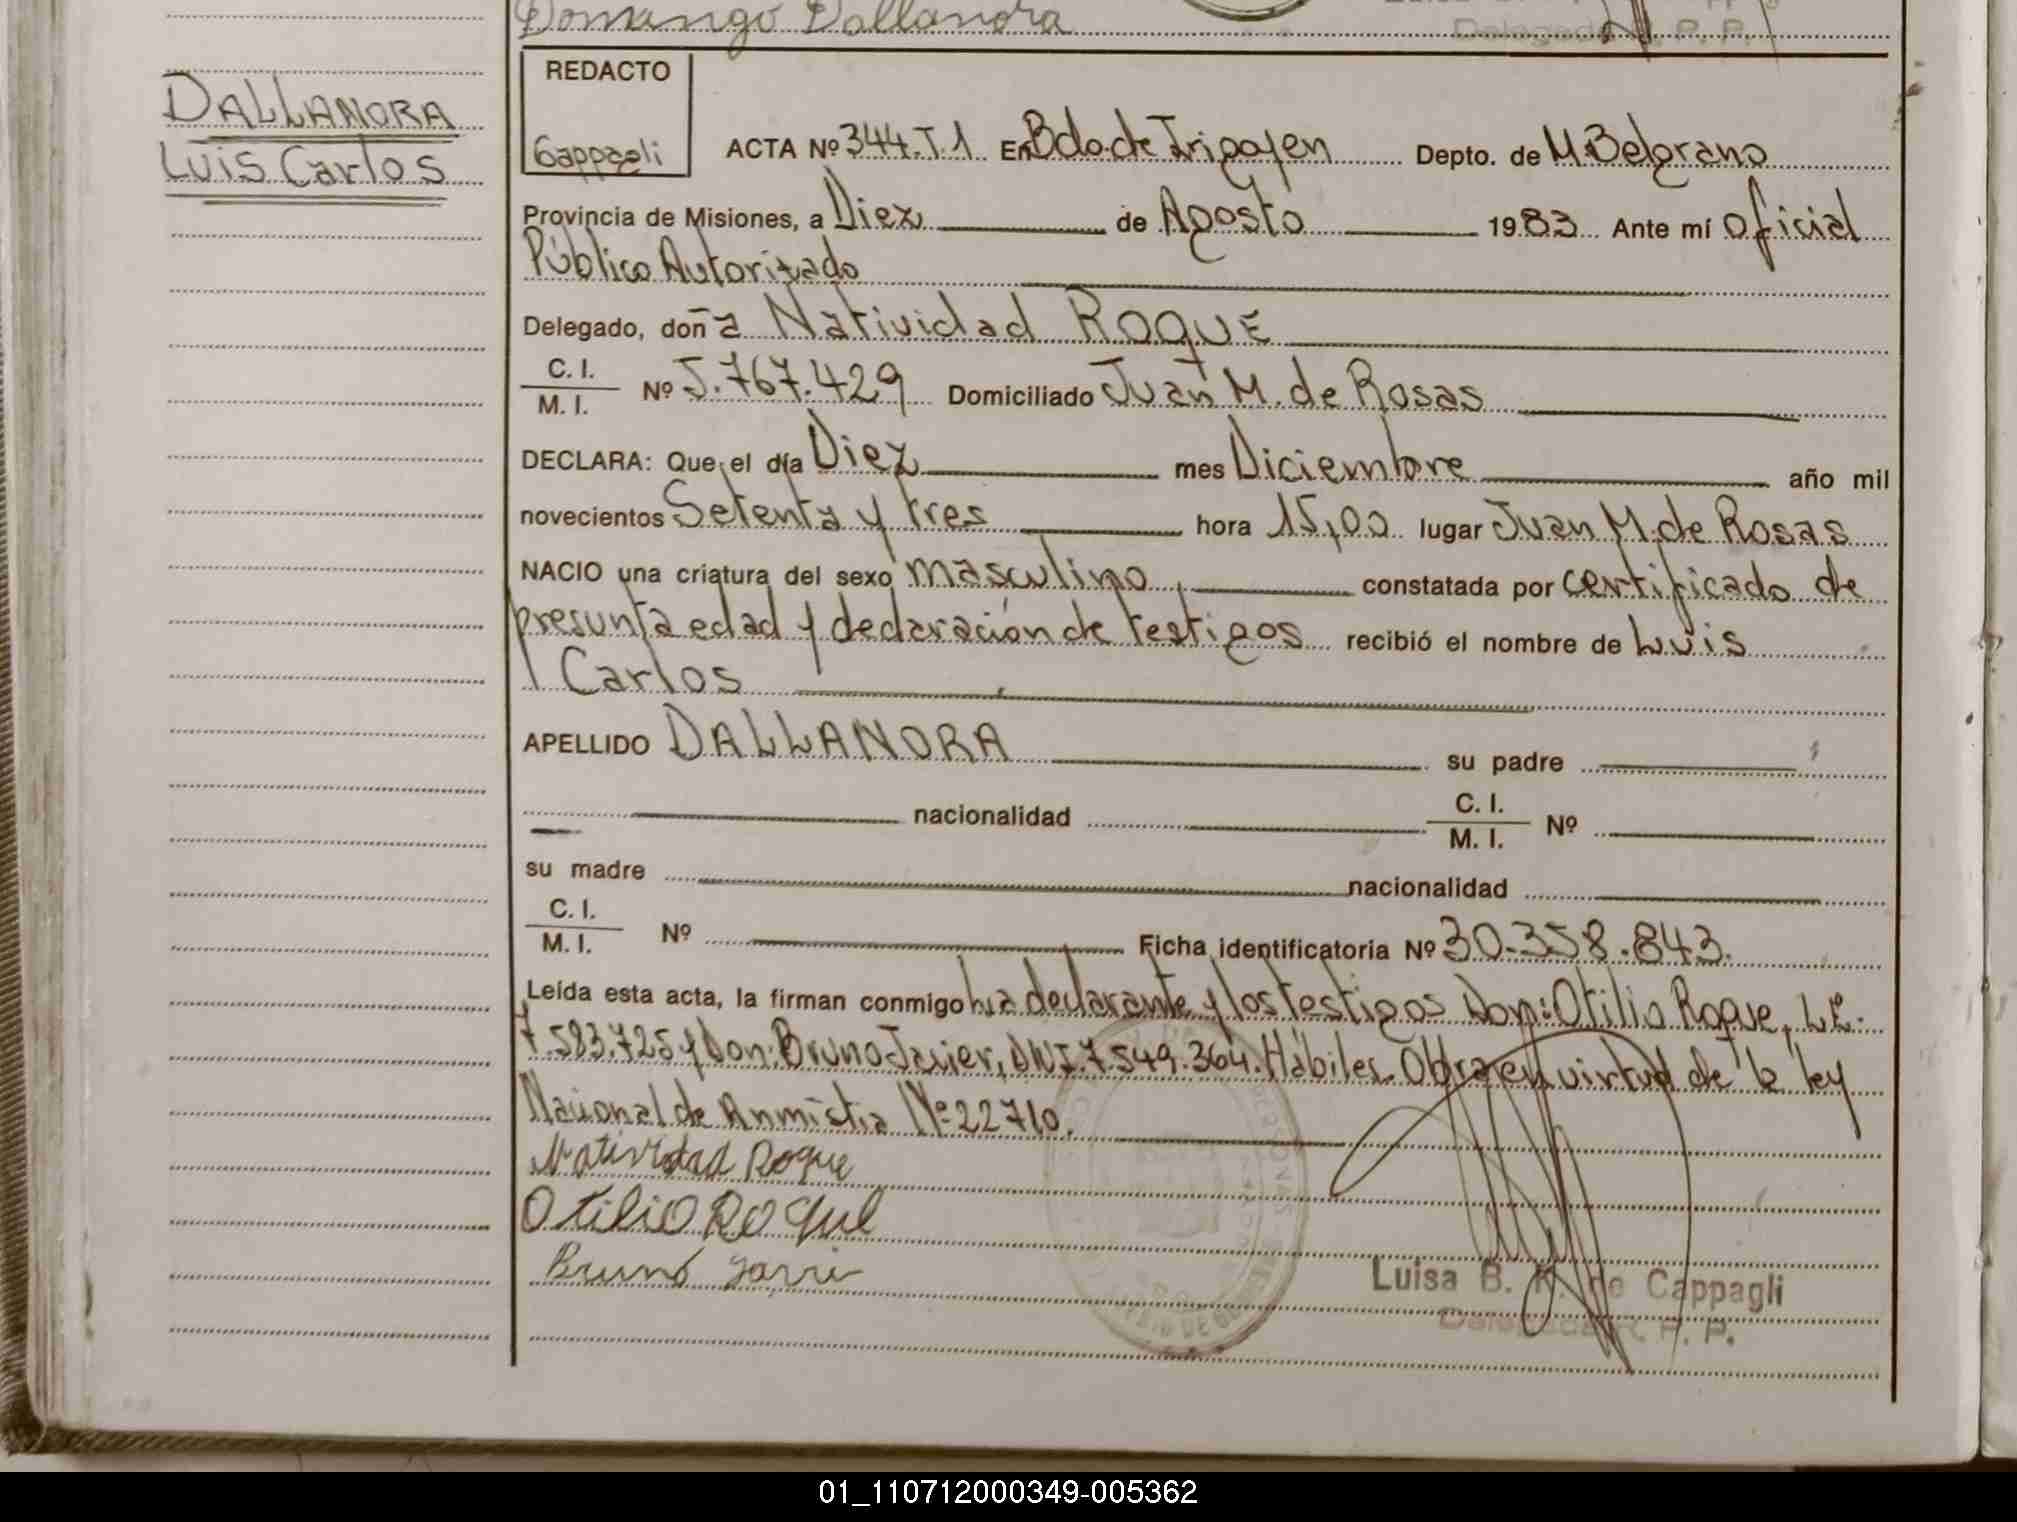 Domingo Dallanora
Delegada R. P. P.
DALLANORA
Luis Carlos
REDACTO
Cappagli
ACTA Nº 344.T.1 En Bdo.de Irigoyen Depto. de M.Belgrano
Provincia de Misiones, a Diez de Agosto 1983 Ante mí Oficial
Público Autorizado
Delegado, doña Natividad ROQUE
C. I.
M. I. Nº 5.767.429 Domiciliado Juan M. de Rosas
DECLARA: Que el día Diez mes Diciembre año mil
novecientos Setenta y tres hora 15,00 lugar Juan M. de Rosas
NACIO una criatura del sexo masculino, constatada por certificado de
presunta edad y declaración de testigos recibió el nombre de Luis
Carlos
APELLIDO DALLANORA su padre
nacionalidad C. I.
M. I. Nº
su madre nacionalidad
C. I.
M. I. Nº Ficha identificatoria Nº 30.358.843.
Leída esta acta, la firman conmigo La declarante y los testigos Don: Otilio Roque, L.E.
7.583.725 y Don: Bruno Javier, DNI.7.549.364. Hábiles. Obra en virtud de la ley
Nacional de Anmistia Nº 22710.
Natividad Roque
Otilio Roque
Bruno
Luisa B. K. de Cappagli
Delegada R. P. P.
01_110712000349-005362